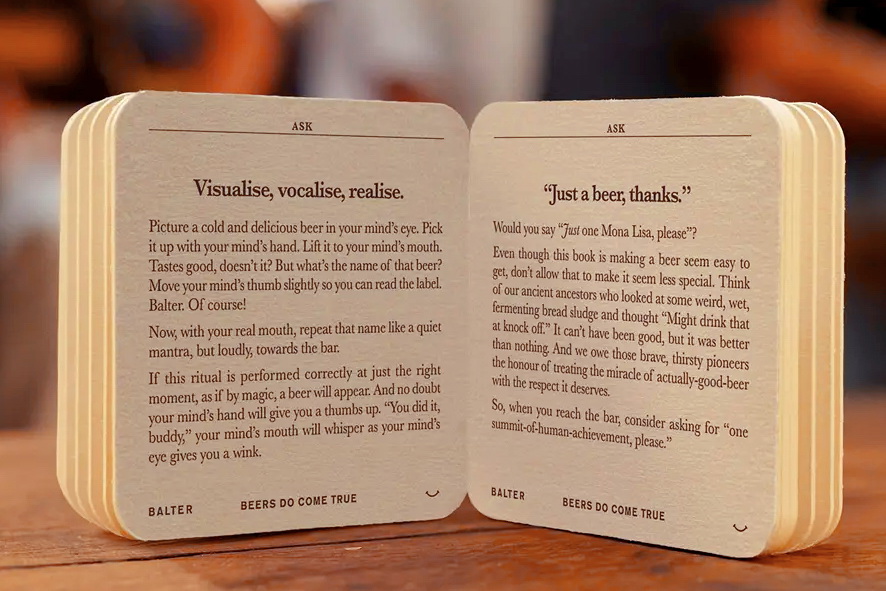 ASK
Visualise, vocalise, realise.
Picture a cold and delicious beer in your mind’s eye. Pick
it up with your mind’s hand. Lift it to your mind’s mouth.
Tastes good, doesn’t it? But what’s the name of that beer?
Move your mind’s thumb slightly so you can read the label.
Balter. Of course!
Now, with your real mouth, repeat that name like a quiet
mantra, but loudly, towards the bar.
If this ritual is performed correctly at just the right
moment, as if by magic, a beer will appear. And no doubt
your mind’s hand will give you a thumbs up. “You did it,
buddy,” your mind’s mouth will whisper as your mind’s
eye gives you a wink.
BALTER
BEERS DO COME TRUE
ASK
“Just a beer, thanks.”
Would you say “Just one Mona Lisa, please”?
Even though this book is making a beer seem easy to
get, don’t allow that to make it seem less special. Think
of our ancient ancestors who looked at some weird, wet,
fermenting bread sludge and thought “Might drink that
at knock off.” It can’t have been good, but it was better
than nothing. And we owe those brave, thirsty pioneers
the honour of treating the miracle of actually-good-beer
with the respect it deserves.
So, when you reach the bar, consider asking for “one
summit-of-human-achievement, please.”
BALTER
BEERS DO COME TRUE